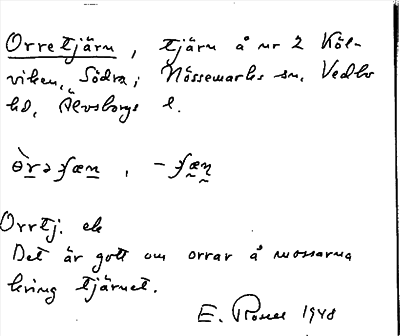 Orretjärn, tjärn å nr 2 Köl-
viken, Södra; Nössemarks sn, Vedbo
hd, Älvsborgs l.
Orrtj. ek
Det är gott om orrar å mossarna
kring tjärnet.
E. 1948